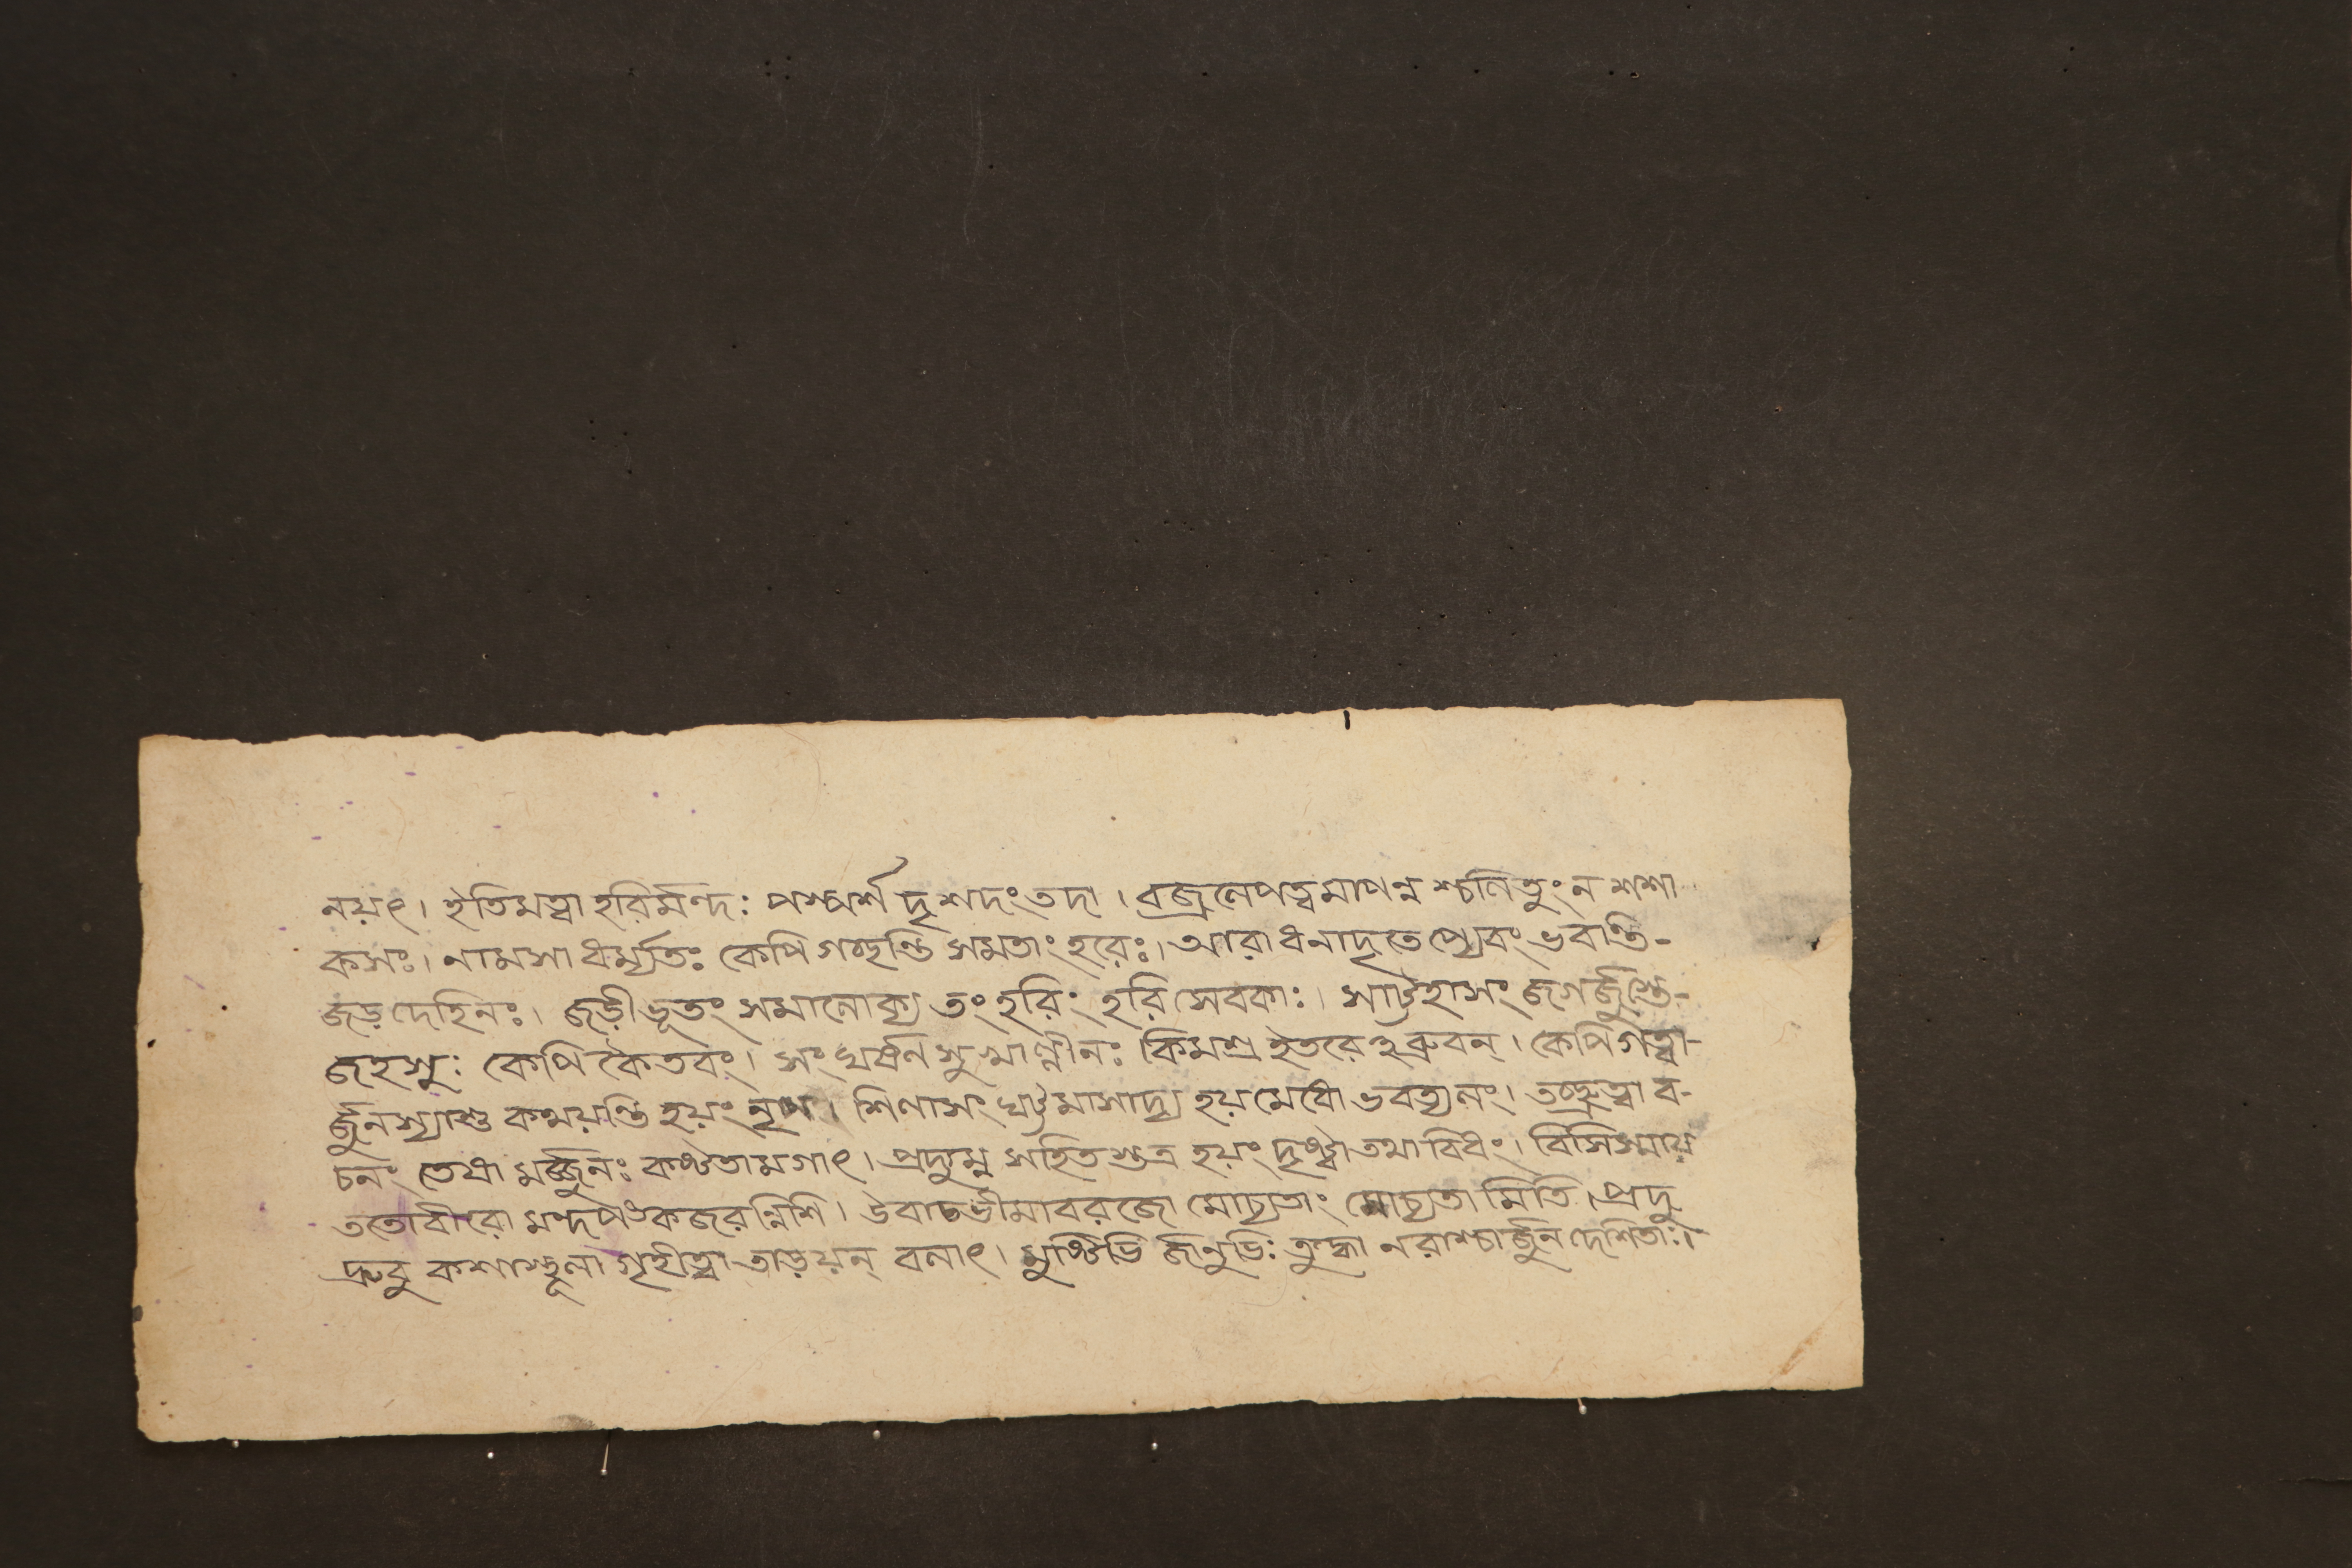 নয়ৎ। ইতিমত্বা হরির্মন্দঃ পস্পর্শ দৃশদং তদা। বজ্রলেপত্বমাপন্ন শ্চলিতুং ন শশা
কসঃ। নামসাধর্ম্ম্যতঃ কেপি গচ্ছন্তি সমতাং হরেঃ। আরাধনাদৃতে প্যেবং ভবান্তি-
জড়দেহিনঃ। জড়ীভূতং সমালোক্য তং হরিং হরিসেবকাঃ। সাট্টহাসং জগর্জুস্তে-
জহসুঃ কেপি কৈতবং। সংঘর্ষন সু খাণ্ণীনঃ কিমশ্ব ইতরে হব্রুবন্। কেপি গত্বা-
র্জুনস্যাশু কথয়ন্তি হয়ং নৃপ। শিলাসংঘট্টমাসাদ্য হয়মেধো ভবত্যলং। তচ্ছ্রুত্বা ব-
চনং তেষা মর্জ্জুনঃ কষ্টতামগাৎ। প্রদ্যুম্ন সহিতস্তত্র হয়ং দৃষ্ট্বা তথাবিধং। বিসিস্মায়
ততোবীরো মন্দপঙ্কজরন্নিশি। উবাচ ভীমাবরজো মোচ্যতাং মোচ্যতা মিতি। প্রদু
দ্রুবু কশাস্থূলা গৃহীত্বা তাড়য়ন্ বলাৎ। মুষ্টিভি র্জানুভিঃ ক্রুদ্ধা নরাশ্চার্জুন দেশিতাঃ।